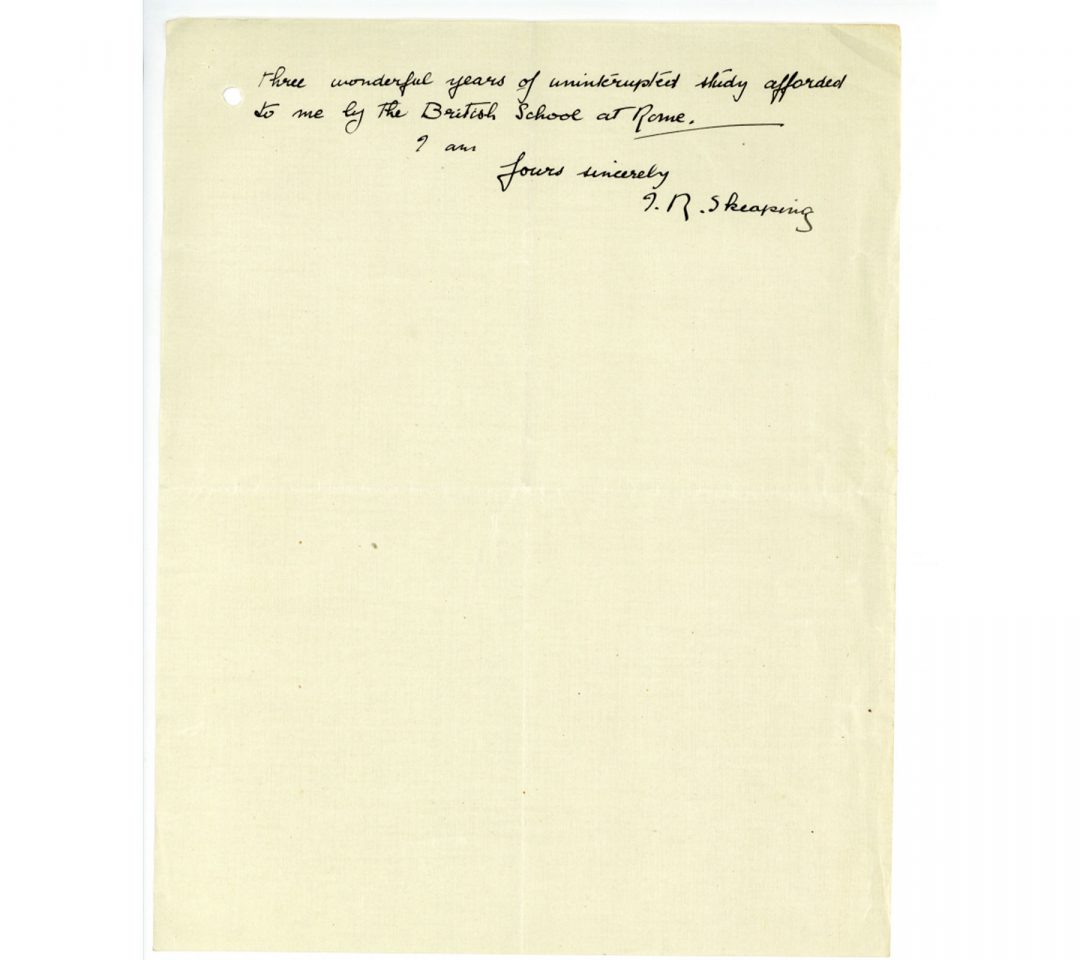 three wonderful years of uninterupted study afforded
to me by the British School at Rome.
I am
Yours sincerely
J. R. Skeaping